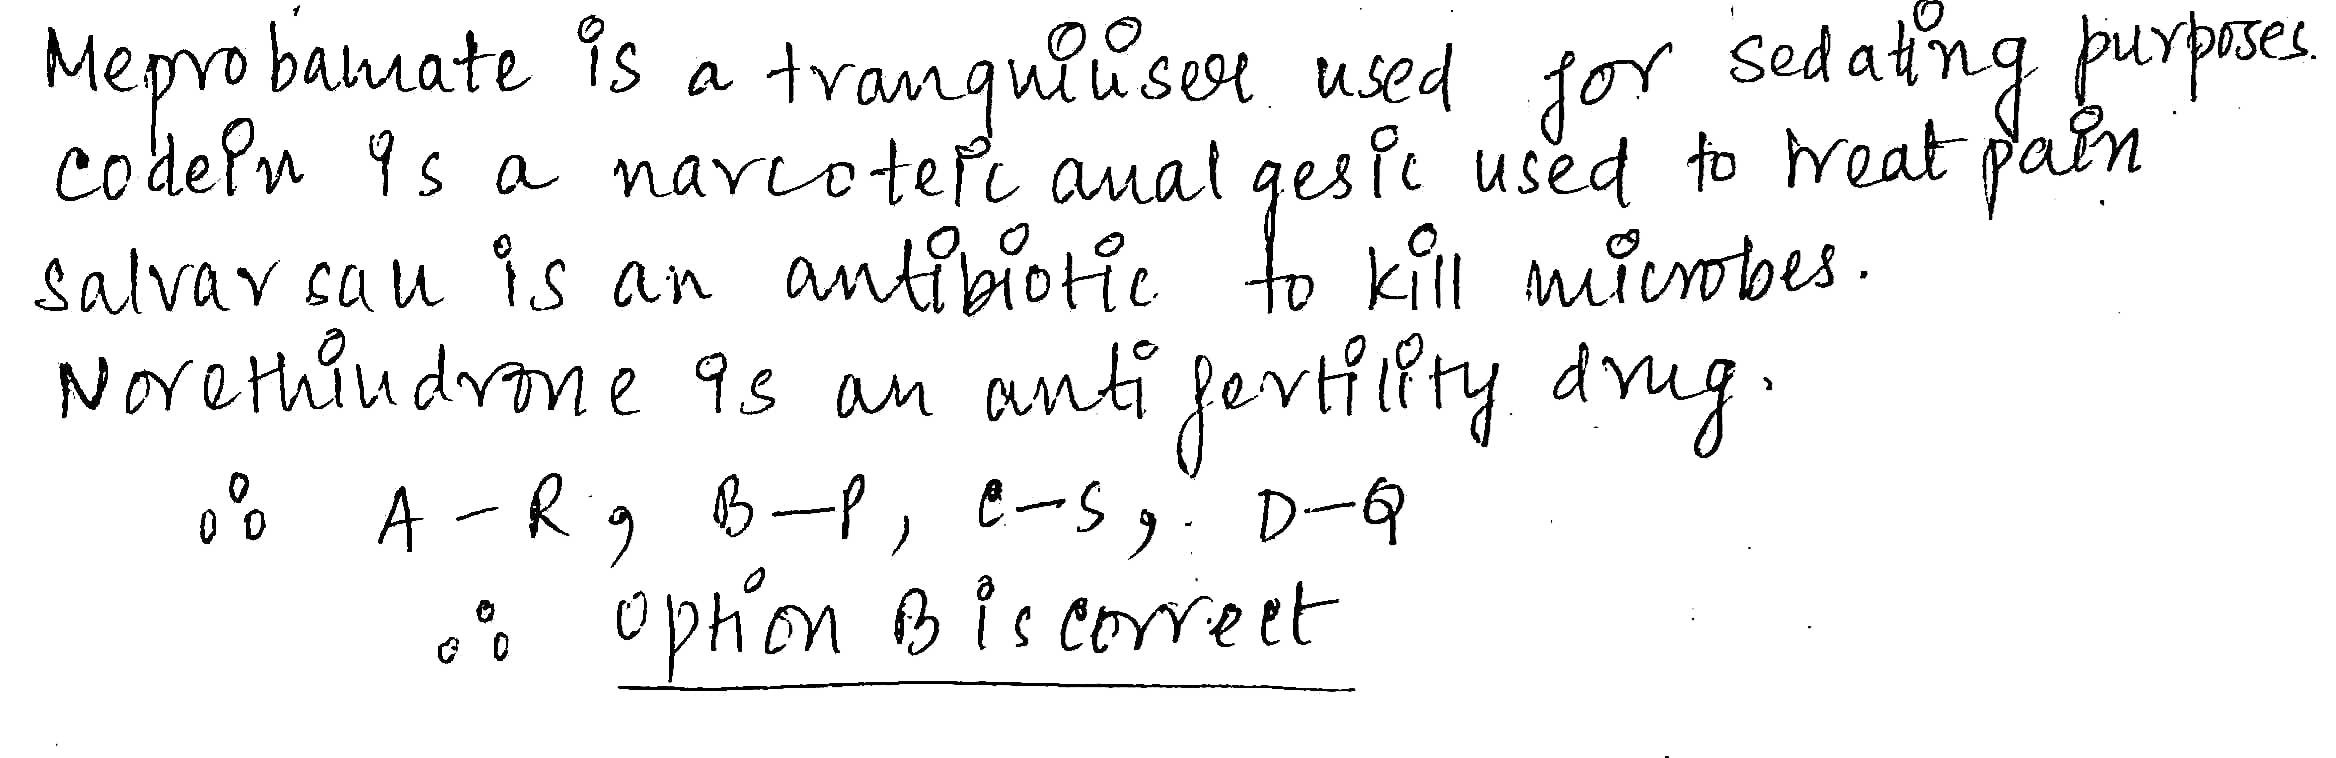 Meprobamate is a tranquiliser used for sedating purposes.
codein is a narcoteic analgesic used to treat pain
salvarsan is an antibiotic to kill microbes.
Norethindrone is an antifertility drug.
∴ A - R, B - P, C - S, D - Q
∴ option B is correct